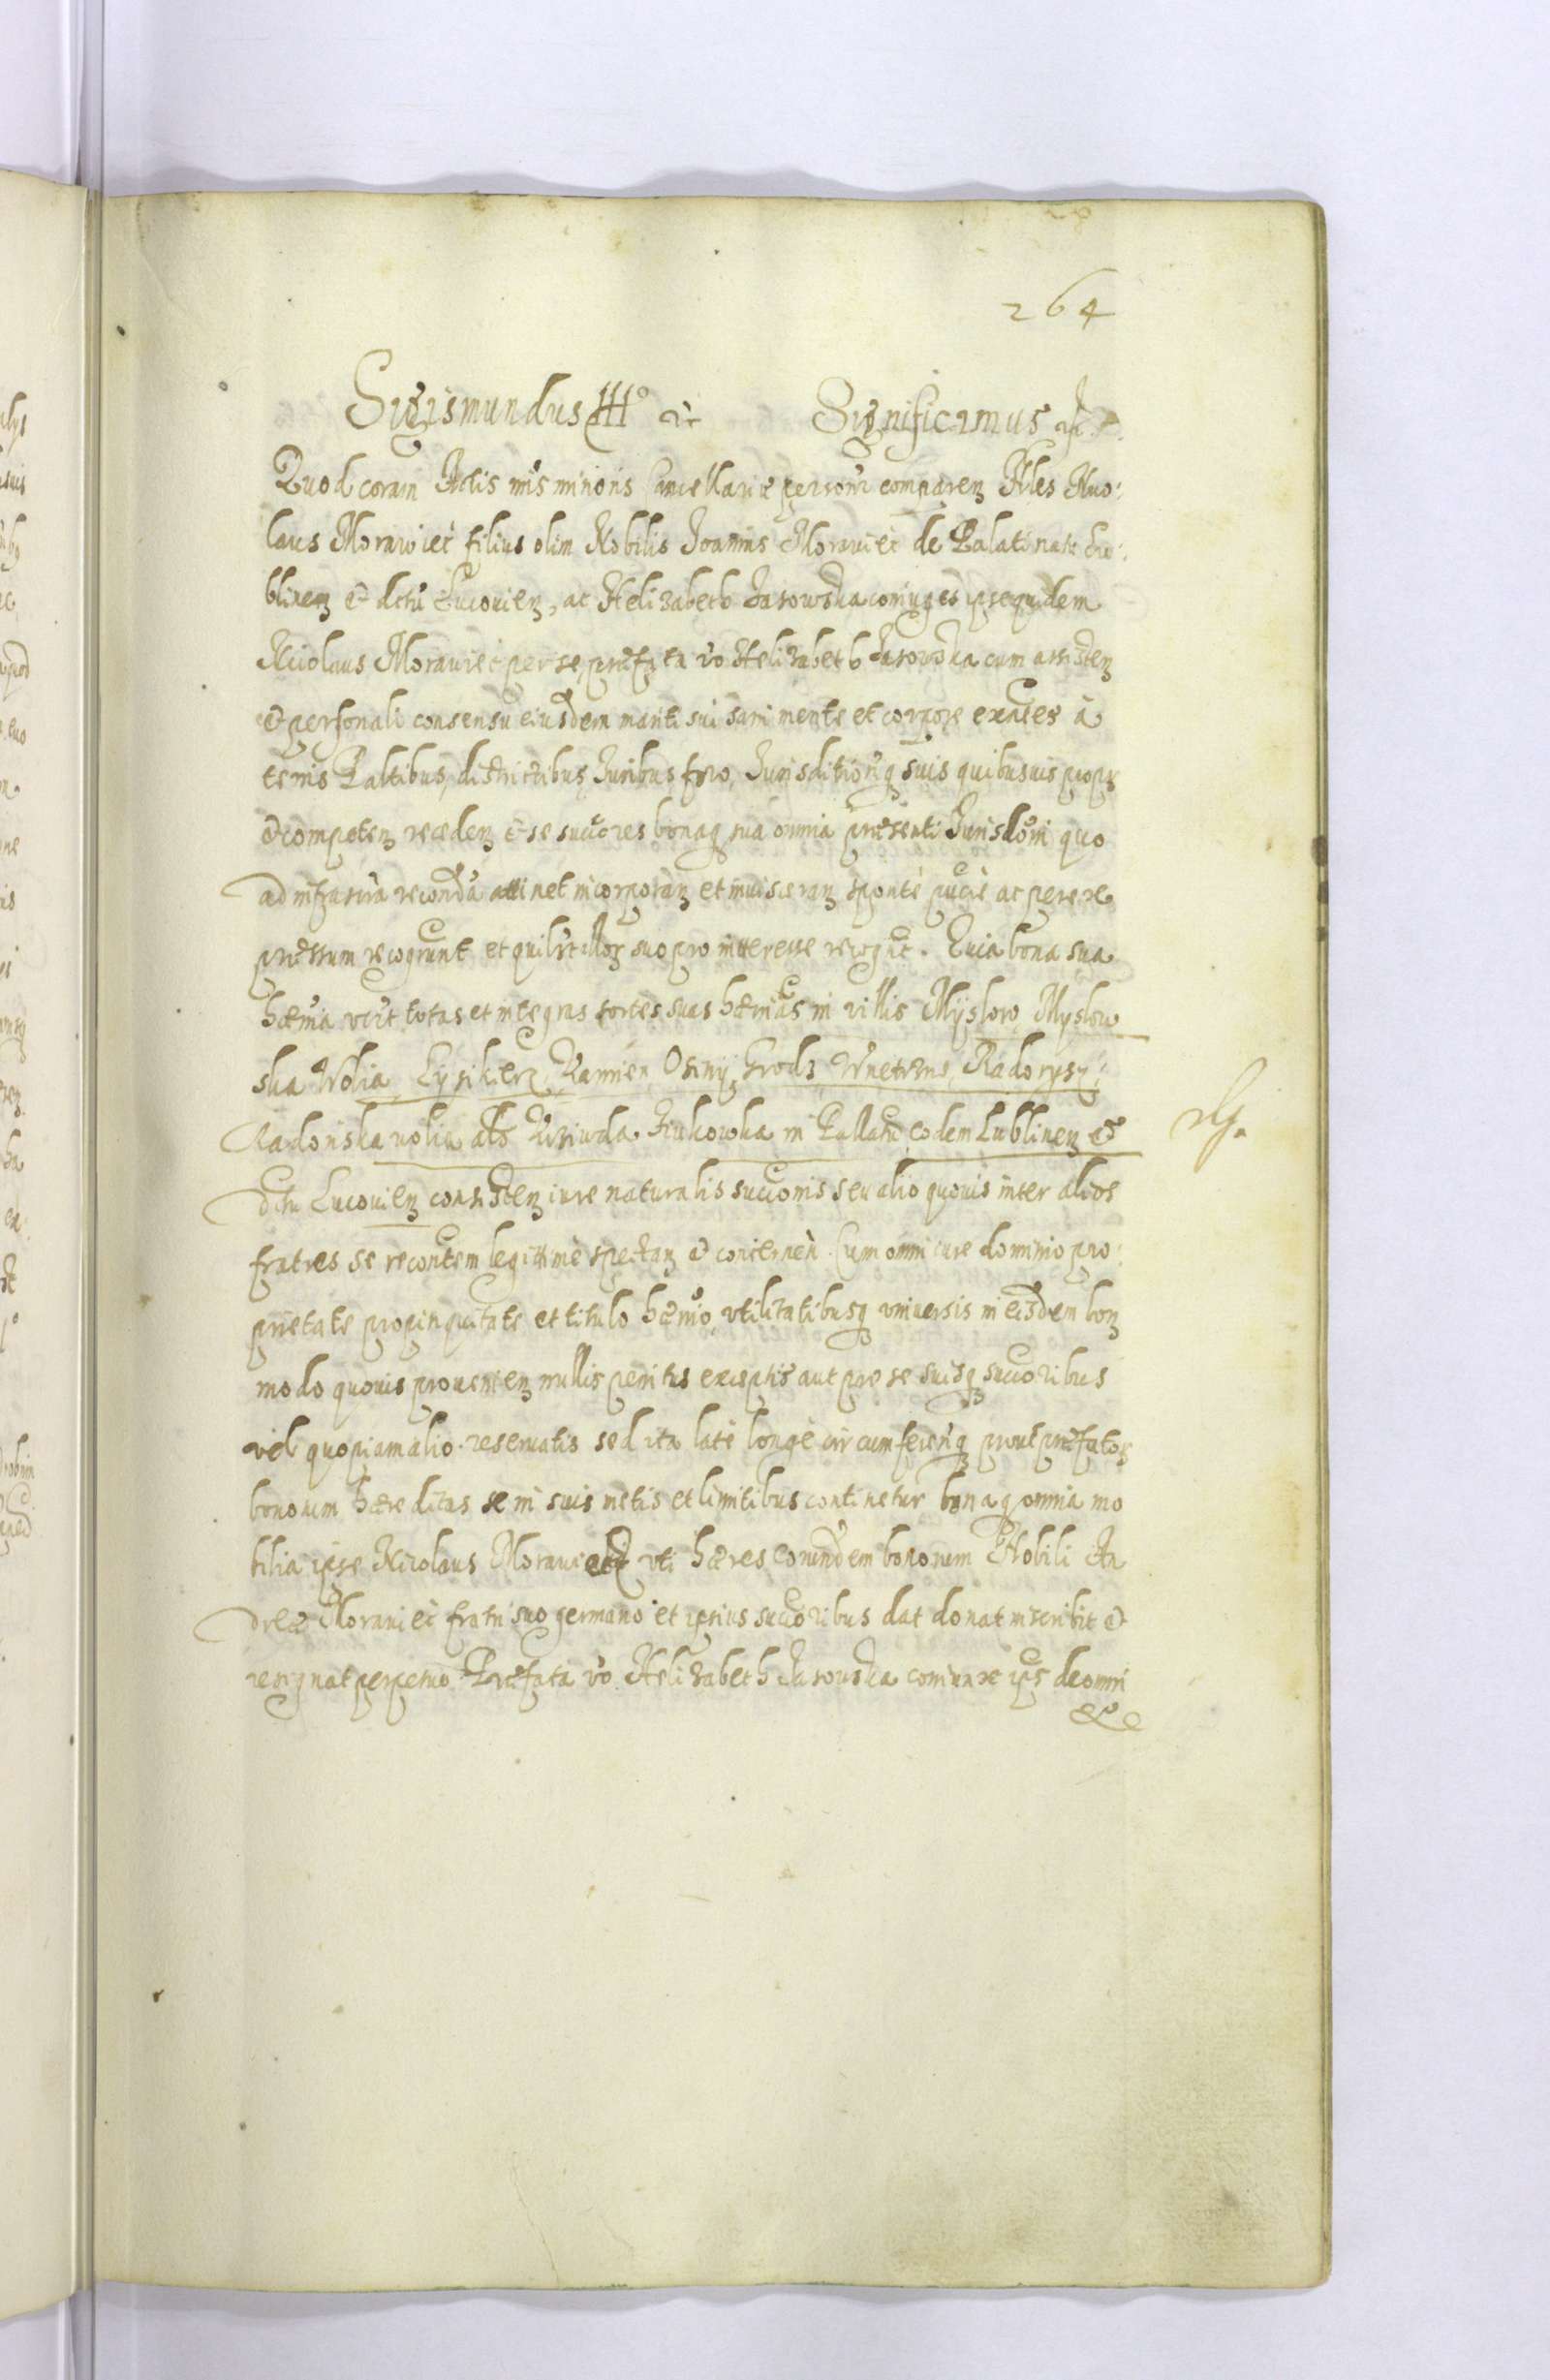 264
Sigismundus III° etc Significamus etc
Quod coram Actis nris minoris Cancellariæ personr comparen Nbles Nico:
laus Morawiec filius olim Nobilis Joannis Morawiec de Palatinatu Lu:
blinen et dctu Lucouien, ac Helizabeth Jasowska coniuges ipse quidem
Nicolaus Morawiec per se, præfata vo Helizabeth Jasowska cum assisten
et personali consensu eiusdem mariti sui sani mente et corpore exntes a
terris Paltibus, districtibus Juribus foro, Jurisditioniq suis quibusuis propr
et competen receden et se succores bonaq sua omnia præsenti Jurisdoni quo
ad infrascra reconda attinet incorporan et inuisceran sponte puce ac per ex
pressum recogrunt et quilibt illor suo pro interesse recogit. Quia bona sua
hæria vcit totas et integras sortes suas hærias in villis Myslow Myslow
ska Wolia Lysikierz Kamien Osiny Grodz Wnetrzne, Radorysz,
Radoriska wolia als Krziwda Zukowka in Pallatu eodem Lublinen et
dctu Lucouien consisten iure naturalis succonis seu alio quouis inter alios
fratres se recontem legittime spectan et concernen. Cum omni iure dominio pro:
prietate propinquitate et titulo hærio, vtilitatibusq vniuersis in eisdem bon
modo quouis prouenien nullis penitus exceptis aut pro se suisq succoribus
vel quopiam alio reseruatis sed ita late longe circumferenq prout præfator
bonorum hæreditas se in suis metis et limitibus continetur bonaq omnia mo
bilia ipse Nicolaus Morawiec vti hæres eorundem bonorum Nobili An
dreæ Morawiec fratri suo germano et ipsius succoribus dat donat inscribit et
resignat perpetuo Præfata vo Helizabeth Jasowska coniunx ips de omni